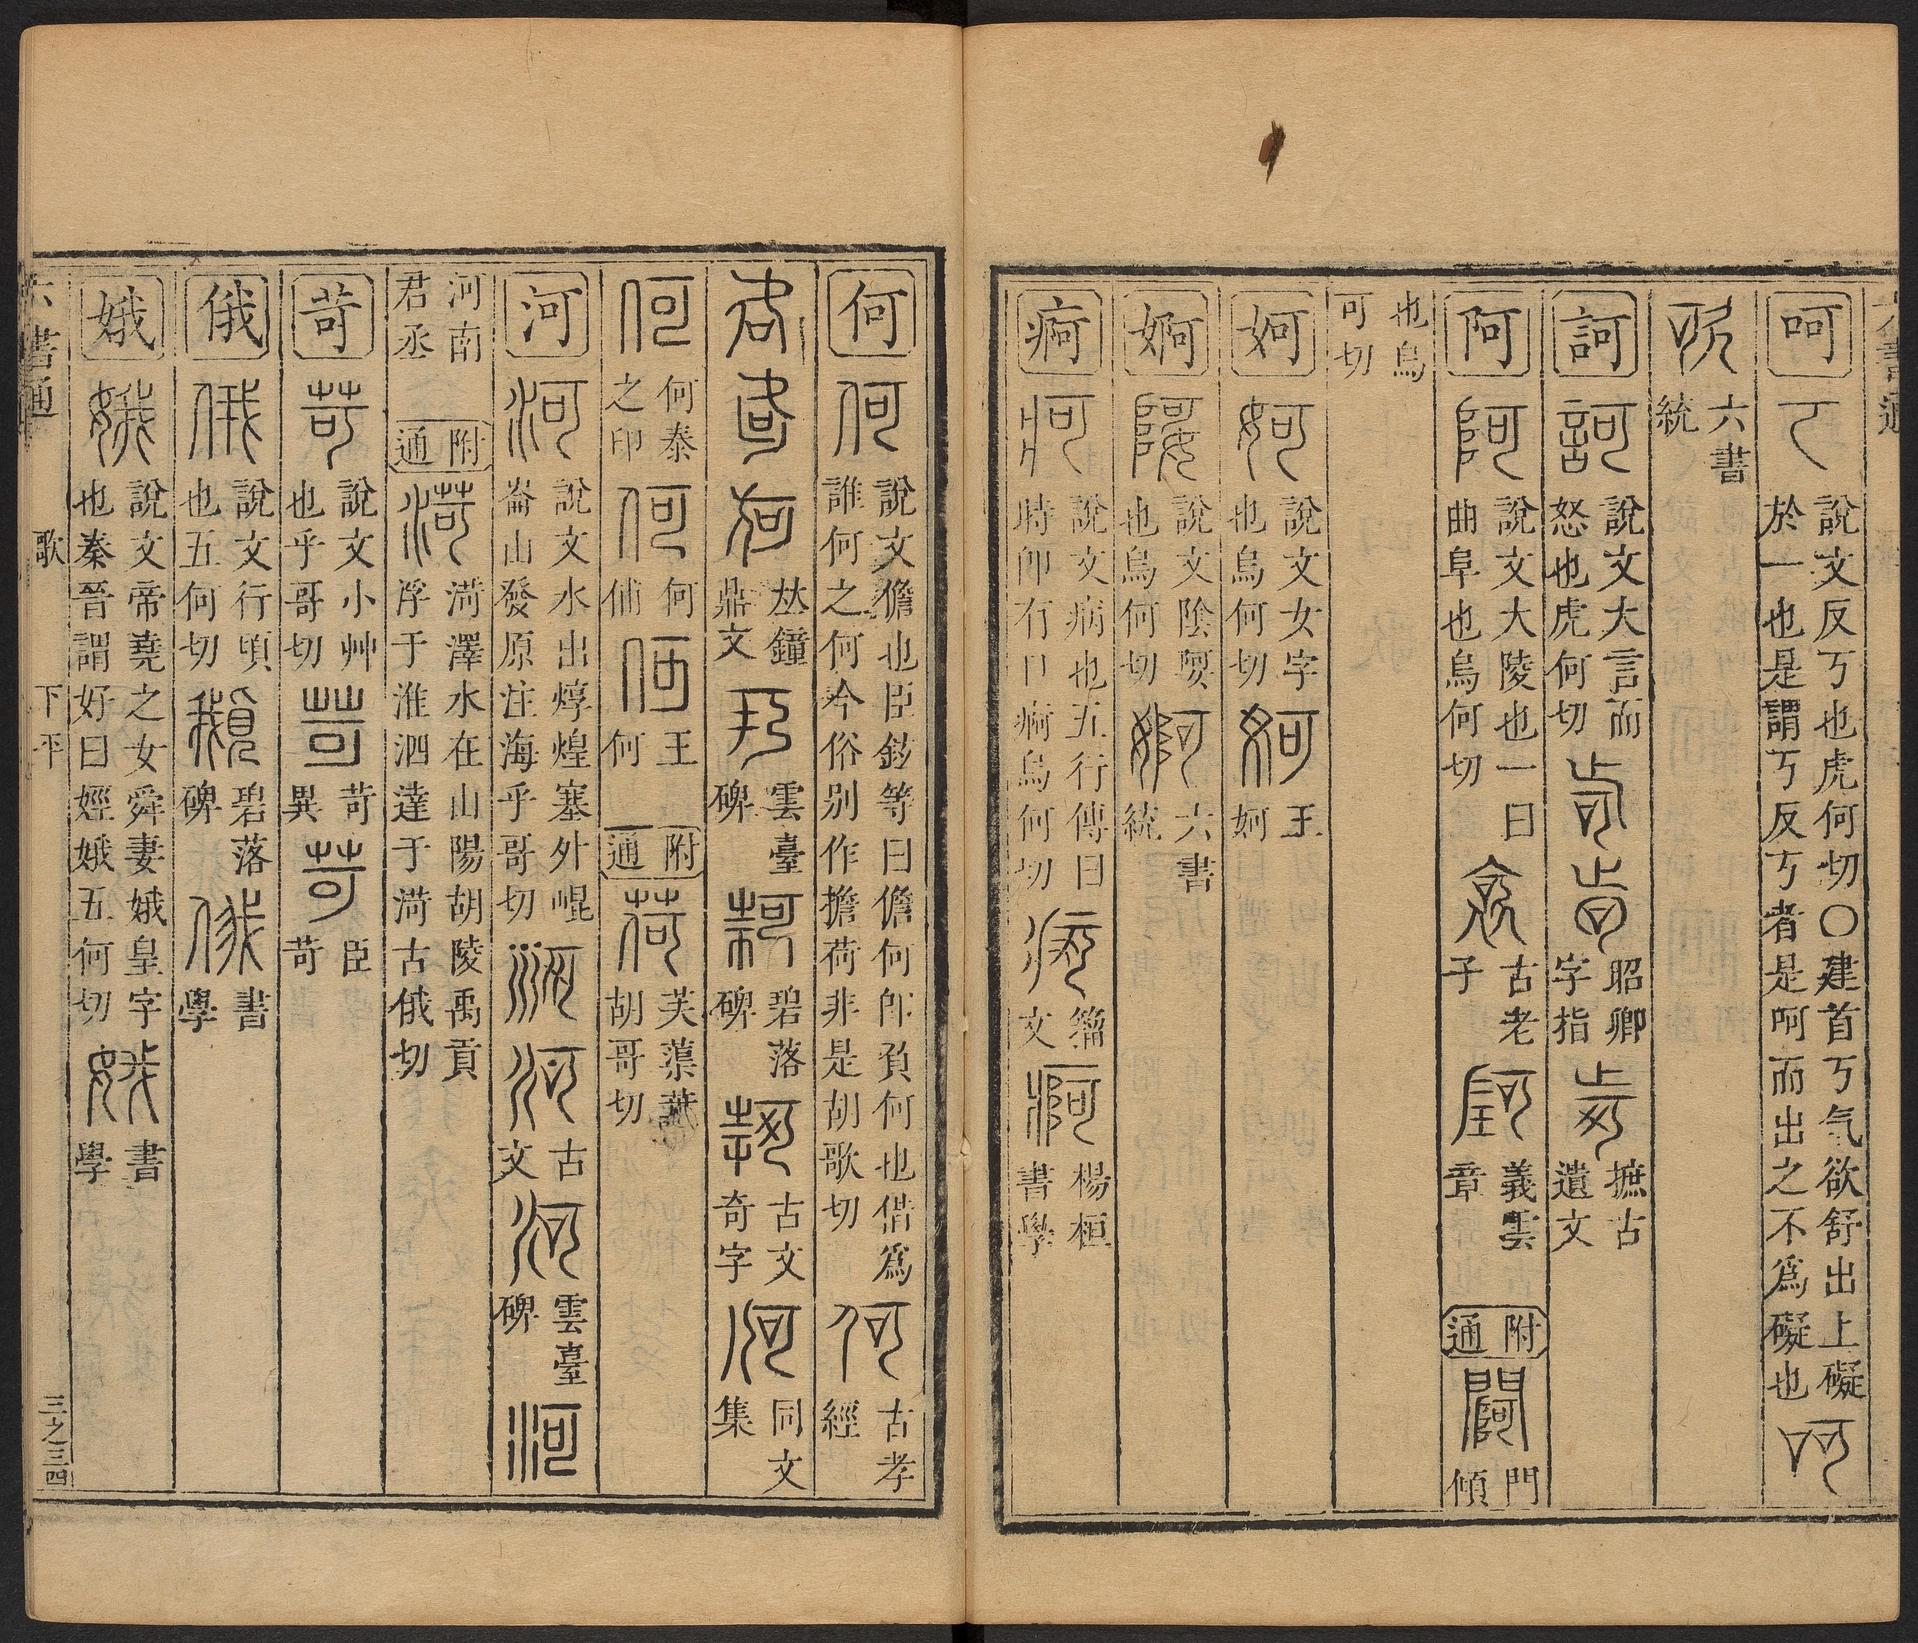 呵 說文反丂也虎何切○建首丂气欲舒出上礙於一也是謂丂反丂者是呵而出之不爲礙也
六書統
訶 說文大言而怒也虎何切 昭卿字指 摭古遺文
阿 說文大陵也一曰曲阜也烏何切 古老子 義雲章 附通 門傾
也烏可切
妸 說文女字也烏何切 王妸
婀 說文陰婀也烏何切 六書統
痾 說文病也五行傳曰時卽有口痾烏何切 籀文 楊桓書學
何 說文儋也臣鉉等曰儋何卽負何也借爲誰何之何今俗別作擔荷非是胡歌切 古孝經
夶鐘鼎文 雲臺碑 碧落碑 古文奇字 同文集
何泰之印 何何俌 王何 附通 芙蕖葉胡哥切
河 說文水出焞煌塞外崐崙山發原注海乎哥切 古文 雲臺碑
河南君丞 附通 菏澤水在山陽胡陵禹貢浮于淮泗達于菏古俄切
苛 說文小艸也乎哥切 苛異 臣苛
俄 說文行頃也五何切 碧落碑 書學
娥 說文帝堯之女舜妻娥皇字也秦晉謂好曰娙娥五何切 書學
六書通 歌 下平 三之三四